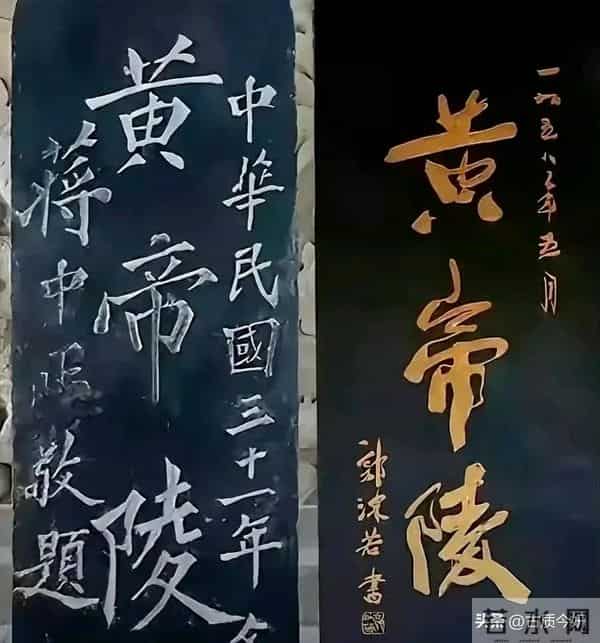 中華民國三十一年
黄帝陵
蔣中正敬題
一九五八年五月
黄帝陵
郭沫若書
头条 @古质今妍